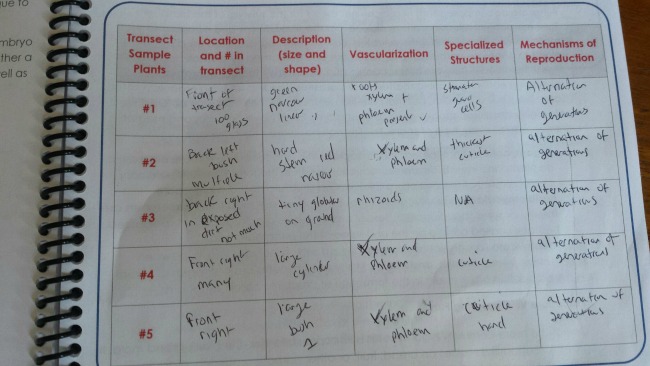 ue to
mbryo
ther a
ell as
Transect
Sample
Plants
Location
and # in
transect
Description
(size and
shape)
Vascularization
Specialized
Structures
Mechanisms of
Reproduction
#1
Front of
transect
100
grass
green
narrow
roots
xylem +
phloem
present
cells
Alternation
of
generations
#2
Back left
bush
multiple
hard
stem
narrow
Xylem and
Phloem
cuticle
alternation of
generations
#3
back right
in exposed
dirt
not much
tiny
on ground
rhizoids
N/A
alternation of
generations
#4
Front right
many
large
cylinder
Xylem and
Phloem
cuticle
alternation of
generations
#5
front
right
large
bush
1
Xylem and
phloem
Cuticle
hard
alternation of
generations